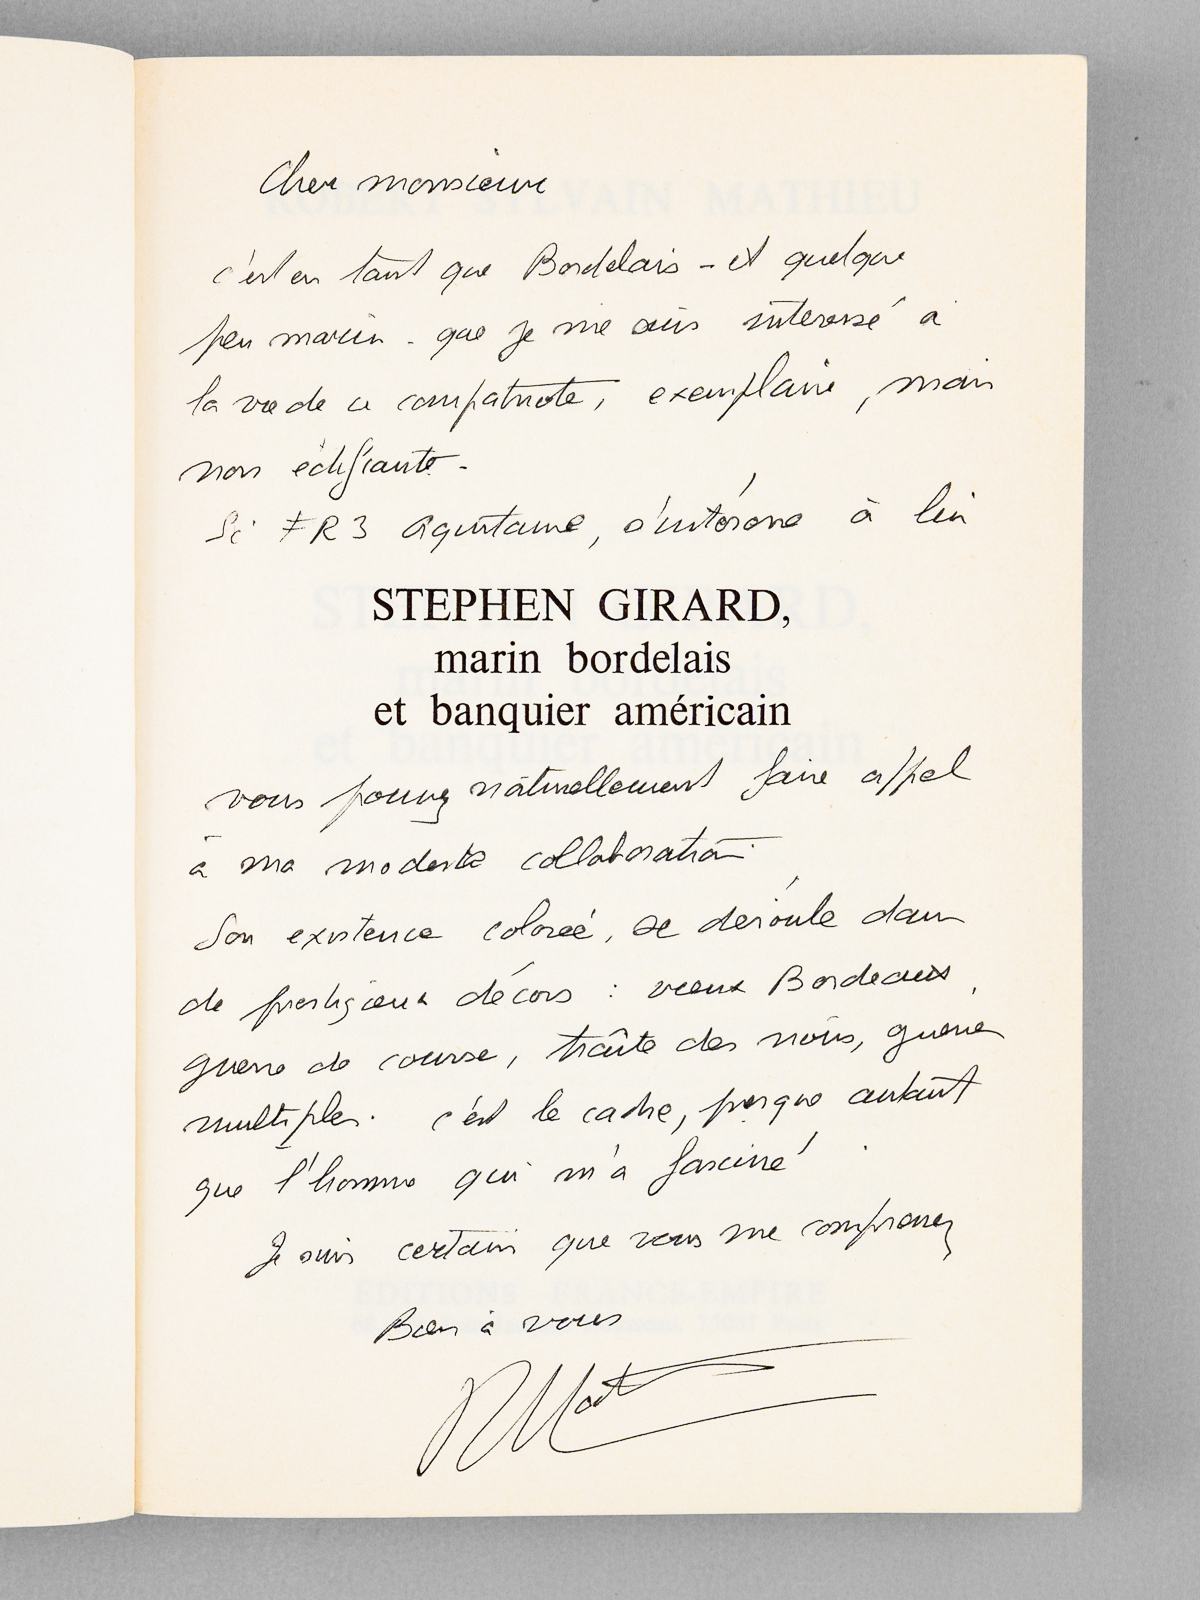 Cher monsieur
c'est en tant que Bordelais - et quelque
peu marin - que je me suis intéressé à
la vie de ce compatriote, exemplaire, mais
non édifiante -
Si FR3 Aquitaine, s'intéresse à lui
STEPHEN GIRARD,
marin bordelais
et banquier américain
vous pouvez naturellement faire appel
à ma modeste collaboration.
Son existence colorée, se déroule dans
de prestigieux décors : vieux Bordeaux,
guerre de course, traîte des noirs, guerres
multiples. c'est le cadre, presque autant
que l'homme qui m'a fasciné.
Je suis certain que vous me comprenez
Bien à vous
ROBERT SYLVAIN MATHIEU
EDITIONS FRANCE-EMPIRE